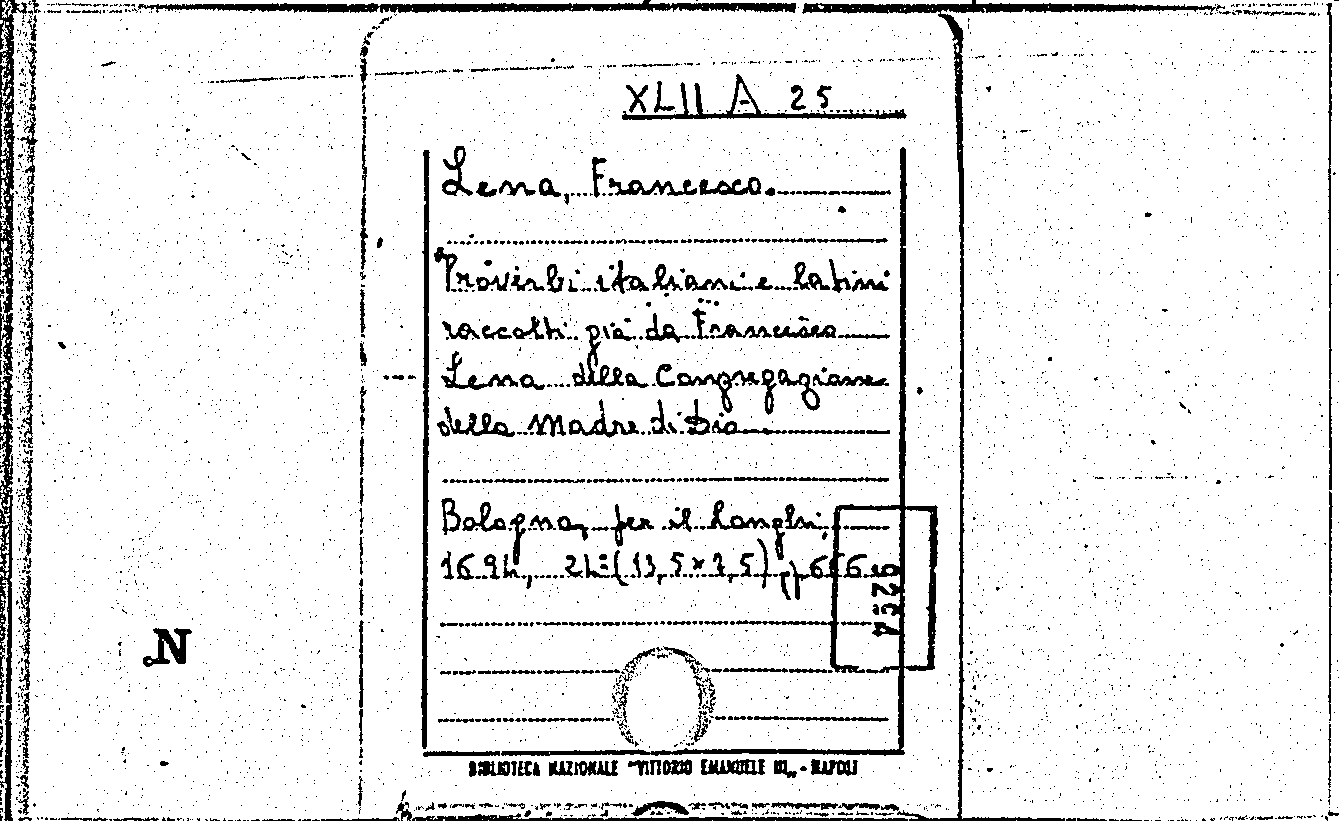 XLII A 25
Lena, Francesco.
Proverbi italiani e latini
raccolti già da Francesco
Lena della Congregazione
della Madre di Dio
Bologna, per il Longhi,
1694, 24° (13,5 x 7,5) pp. 666
9254
N
BIBLIOTECA NAZIONALE "VITTORIO EMANUELE III„ - NAPOLI